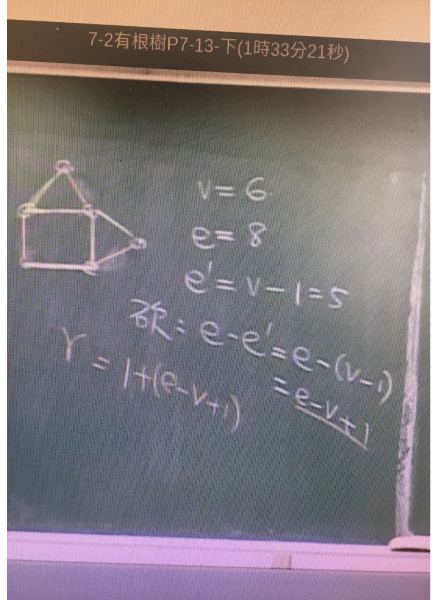 7-2有根樹P7-13-下(1時33分21秒)
v = 6
e = 8
e' = v - 1 = 5
砍 = e - e' = e - (v-1)
= e - v + 1
r = 1 + (e - v + 1)